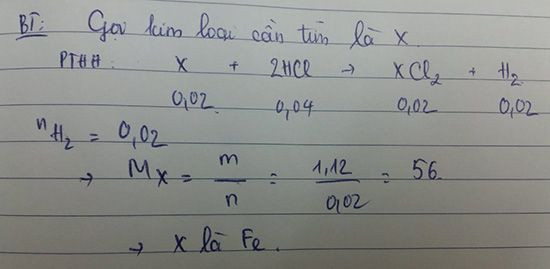 BT: Gọi kim loại cần tìm là X.
PTHH: X + 2HCl → XCl₂ + H₂
0,02 0,04 0,02 0,02
nH₂ = 0,02
→ Mx = m/n = 1,12/0,02 = 56
→ X là Fe.